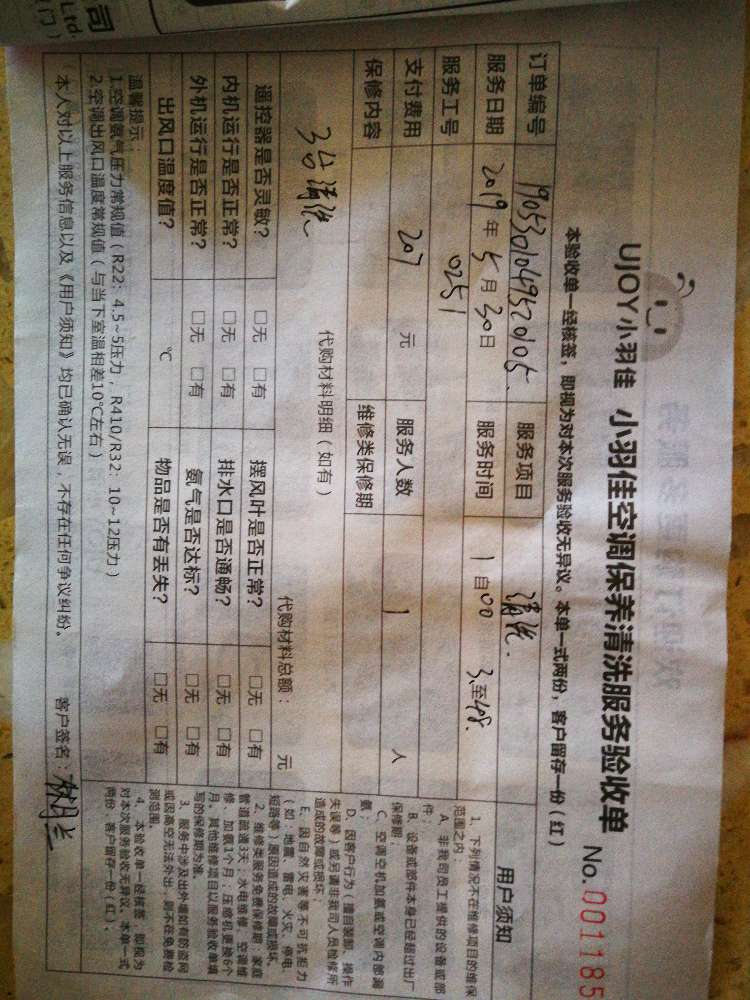 司
Ltd.
(门)
UJOY小羽佳 小羽佳空调保养清洗服务验收单 No.001185
本验收单一经核签，即视为对本次服务验收无异议。本单一式两份，客户留存一份（红）
订单编号 服务项目 清洗.
服务日期 2019年5月30日 服务时间 1自00 3至48.
服务工号 0251
支付费用 207 元 服务人数 1 人
保修内容 维修类保修期
代购材料明细（如有）
3台清洗
代购材料总额： 元
遥控器是否灵敏？ □无 □有 摆风叶是否正常？ □无 □有
内机运行是否正常？ □无 □有 排水口是否通畅？ □无 □有
外机运行是否正常？ □无 □有 氨气是否达标？ □无 □有
出风口温度值？ ℃ 物品是否有丢失？ □无 □有
温馨提示：
1.空调氨气压力常规值（R22：4.5~5压力，R410/R32：10~12压力）
2.空调出风口温度常规值（与当下室温相差10℃左右）
本人对以上服务信息以及《用户须知》均已确认无误，不存在任何争议纠纷。 客户签名：
用户须知
1、下列情况不在维修项目的维保
范围之内：
A、非我司员工提供的设备或部
件；
B、设备或部件本身已经超过出厂
保修期；
C、空调空机加氨或空调内部漏
氨；
D、因客户行为（擅自装卸、操作
失误等）或另请非我司人员检修所
造成的故障或损坏；
E、因自然灾害等不可抗拒力
（如：地震、雷电、火灾、停电、
短路等）原因造成的故障或损坏。
2、维修类服务免费保修期：家庭
管道疏通3天；水电维修、空调维
修、加氨1个月；压缩机更换6个
月。其他维修项目以服务验收单填
写的保修期为准。
3、服务中涉及出外墙如有防盗网
或因高空无法外出，则不在免费检
测范围。
4、本验收单一经核签，即视为
对本次服务验收无异议。本单一式
两份，客户留存一份（红）。